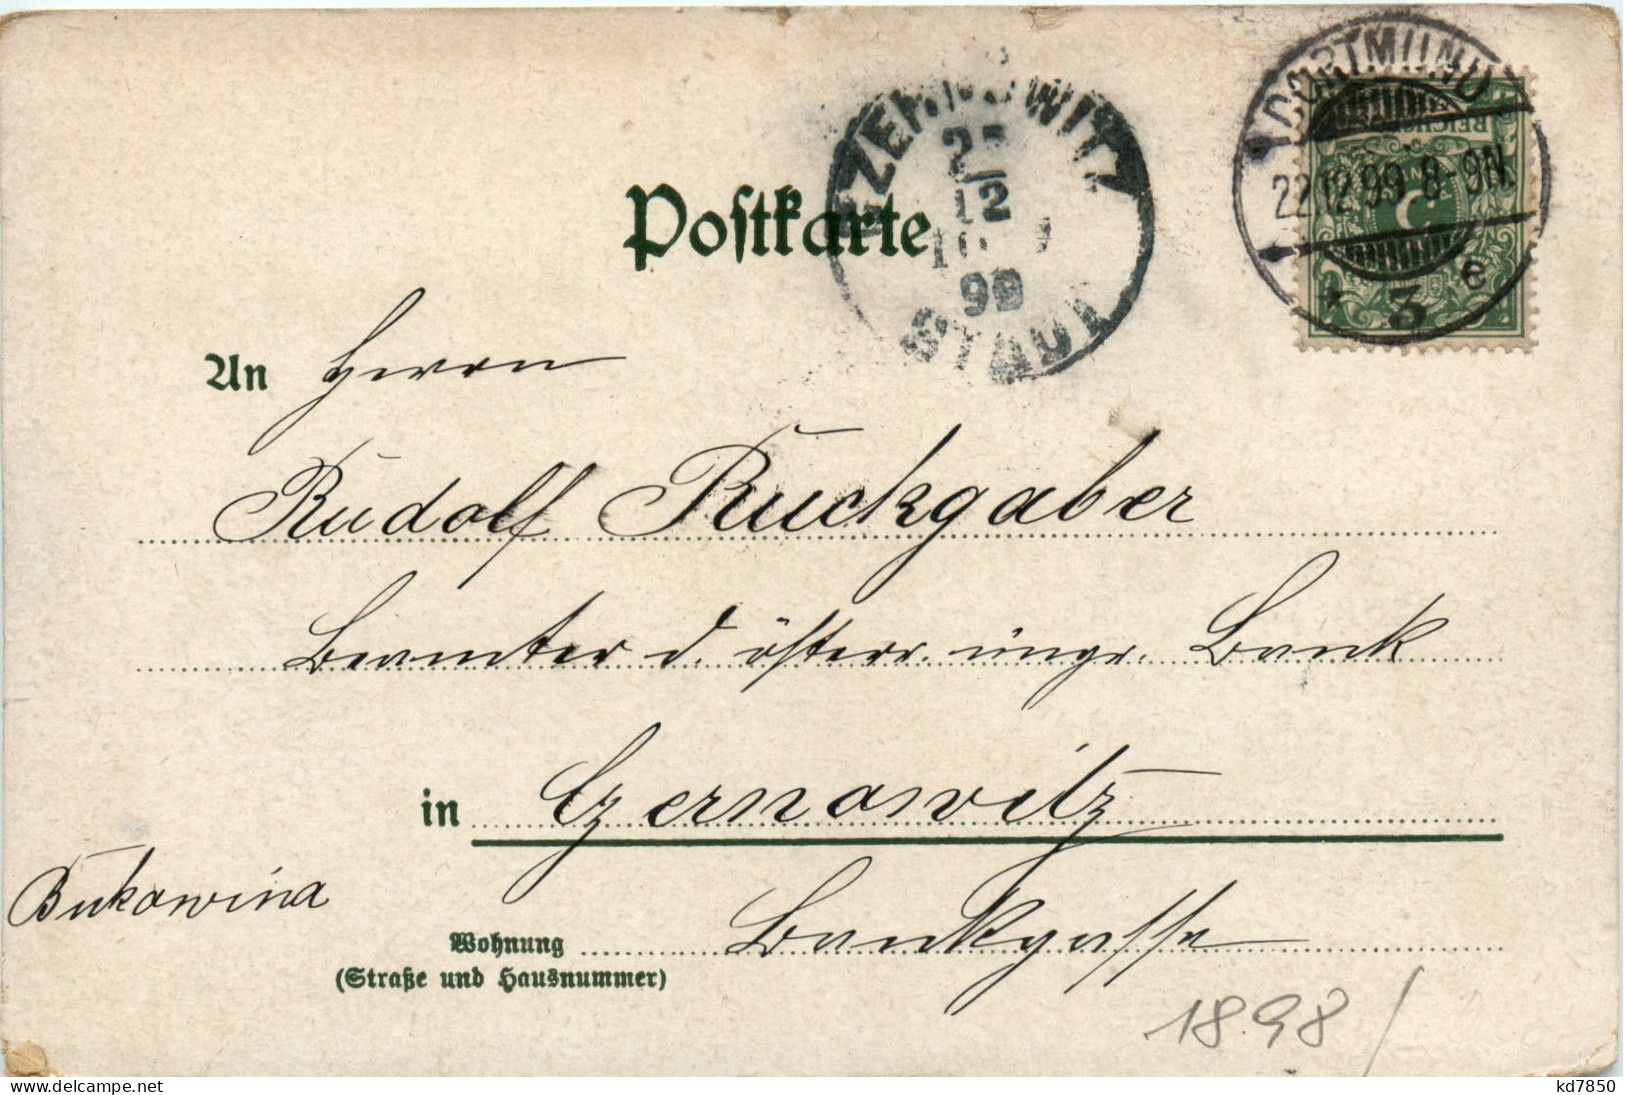 DORTMUND
22.12.99.8-9N.
* 3 e
REICHSPOST
5
CZERNOWITZ
25
12
99
STADT
Postkarte
An Herrn
Rudolf Ruckgaber
Beamter d. österr. ungr. Bank
in Czernowitz
Bukowina
Wohnung Bankgasse
(Straße und Hausnummer)
1898
kd7850